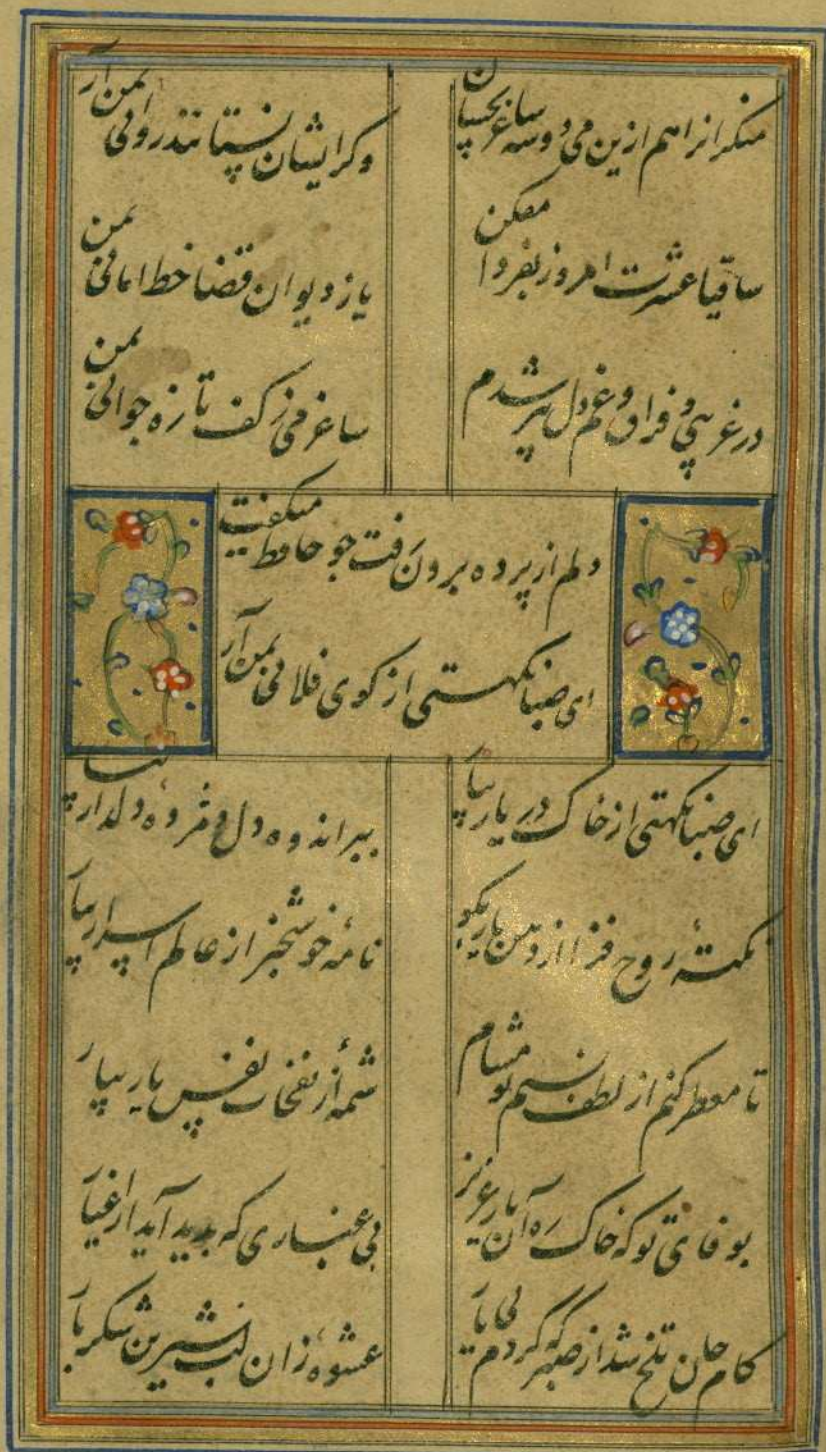 منکرانرا هم ازین می دو سه ساغر بچشان
وکر ایشان نستانند روانی بمن آر
ساقیا عشرت امروز بفردا مفکن
یا ز دیوان قضا خط امانی بمن
در غریبی و فراق و غم دل پیر شدم
ساغر می ز کف تازه جوانی بمن
دلم از پرده برون رفت جو حافظ میکفت
ای صبا نکهتی از کوی فلانی بمن آر
ای صبا نکهتی از خاک در یار بیار
ببر اندوه دل و مژده دلدار بیار
نکتهٔ روح فزا از دهن یار بکو
نامهٔ خوش خبر از عالم اسرار بیار
تا معطر کنم از لطف نسیم تو مشام
شمهٔ از نفخات نفس یار بیار
بوفای تو که خاک ره آن یار عزیز
بی غباری که بدید آید از اغیار
کام جان تلخ شد از صبر که کردم بی یار
عشوهٔ زان لب شیرین شکر بار